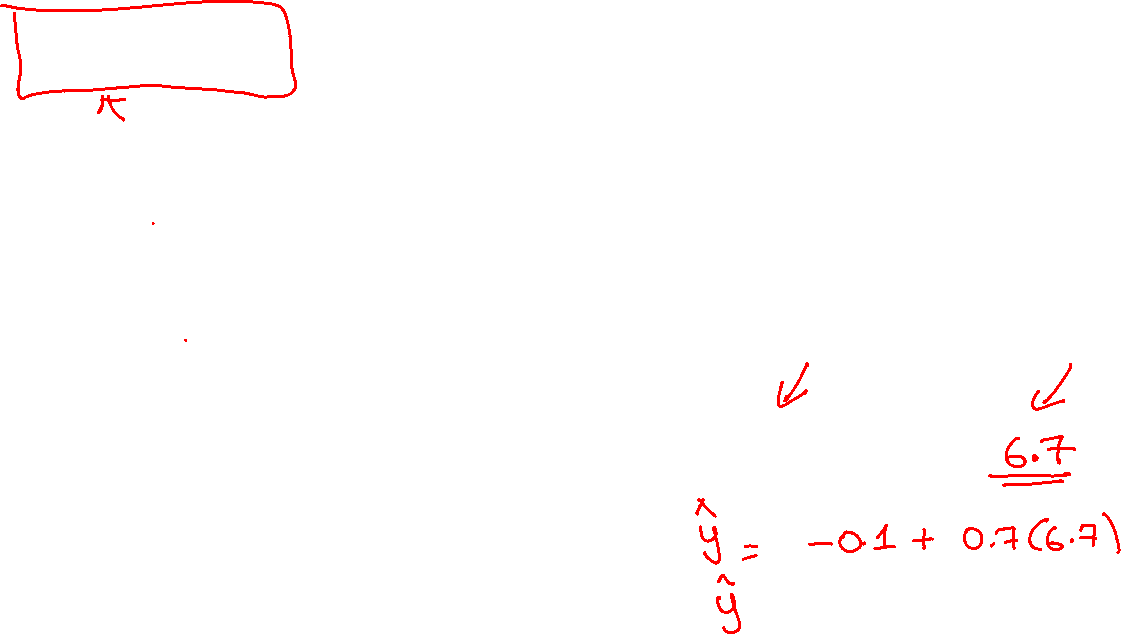 6.7
ŷ = -0.1 + 0.7(6.7)
ŷ